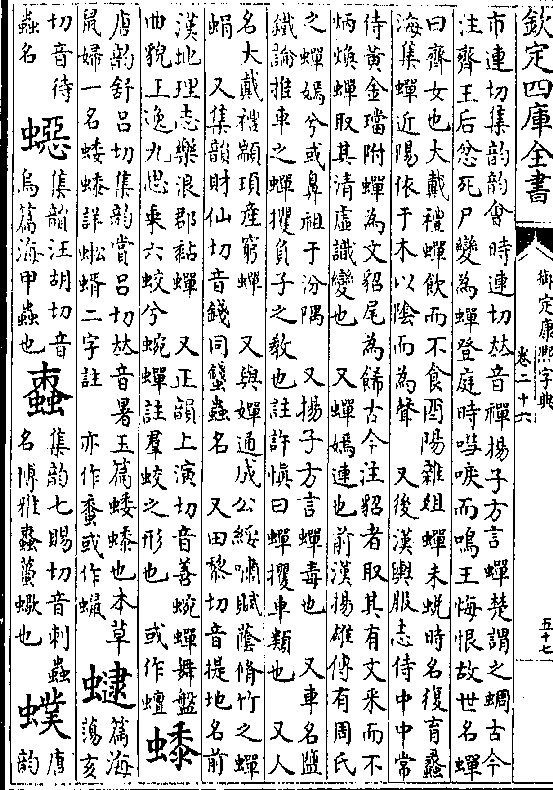 欽定四庫全書
御定康熙字典
卷二十六
五十七
市連切集韵韵會時連切𠀤音禪揚子方言蟬楚謂之蜩古今
注齊王后忿死尸變為蟬登庭時嘒唳而鳴王悔恨故世名蟬
曰齊女也大戴禮蟬飲而不食酉陽雜俎蟬未蛻時名復育蠡
海集蟬近陽依于木以陰而為聲 又後漢輿服志侍中中常
侍黃金璫附蟬為文貂尾為飾古今注貂者取其有文采而不
炳煥蟬取其清虛識變也 又蟬嫣連也前漢揚雄傳有周氏
之蟬嫣兮或鼻祖于汾隅 又揚子方言蟬毒也 又車名鹽
鐵論推車之蟬攫負子之教也註許慎曰蟬攫車類也 又人
名大戴禮顓頊產窮蟬 又與嬋通成公綏嘯賦蔭脩竹之蟬
蜎 又集韵財仙切音錢同蠽蟲名 又田黎切音提地名前
漢地理志樂浪郡黏蟬 又正韻上演切音善蜿蟬舞盤
曲貌王逸九思乘六蛟兮蜿蟬註羣蛟之形也 或作蟺 䗪
唐韵舒呂切集韵賞呂切𠀤音暑玉篇蜲䗪也本草
鼠婦一名蜲䗪詳蜙蝑二字註 亦作蛗或作蝦 䗖 篇海
蕩亥
切音待
蟲名 蟋 集韻汪胡切音
烏篇海甲蟲也 螙 集韵七賜切音刺蟲
名博雅螙蠆蠍也 蟔 唐
韵